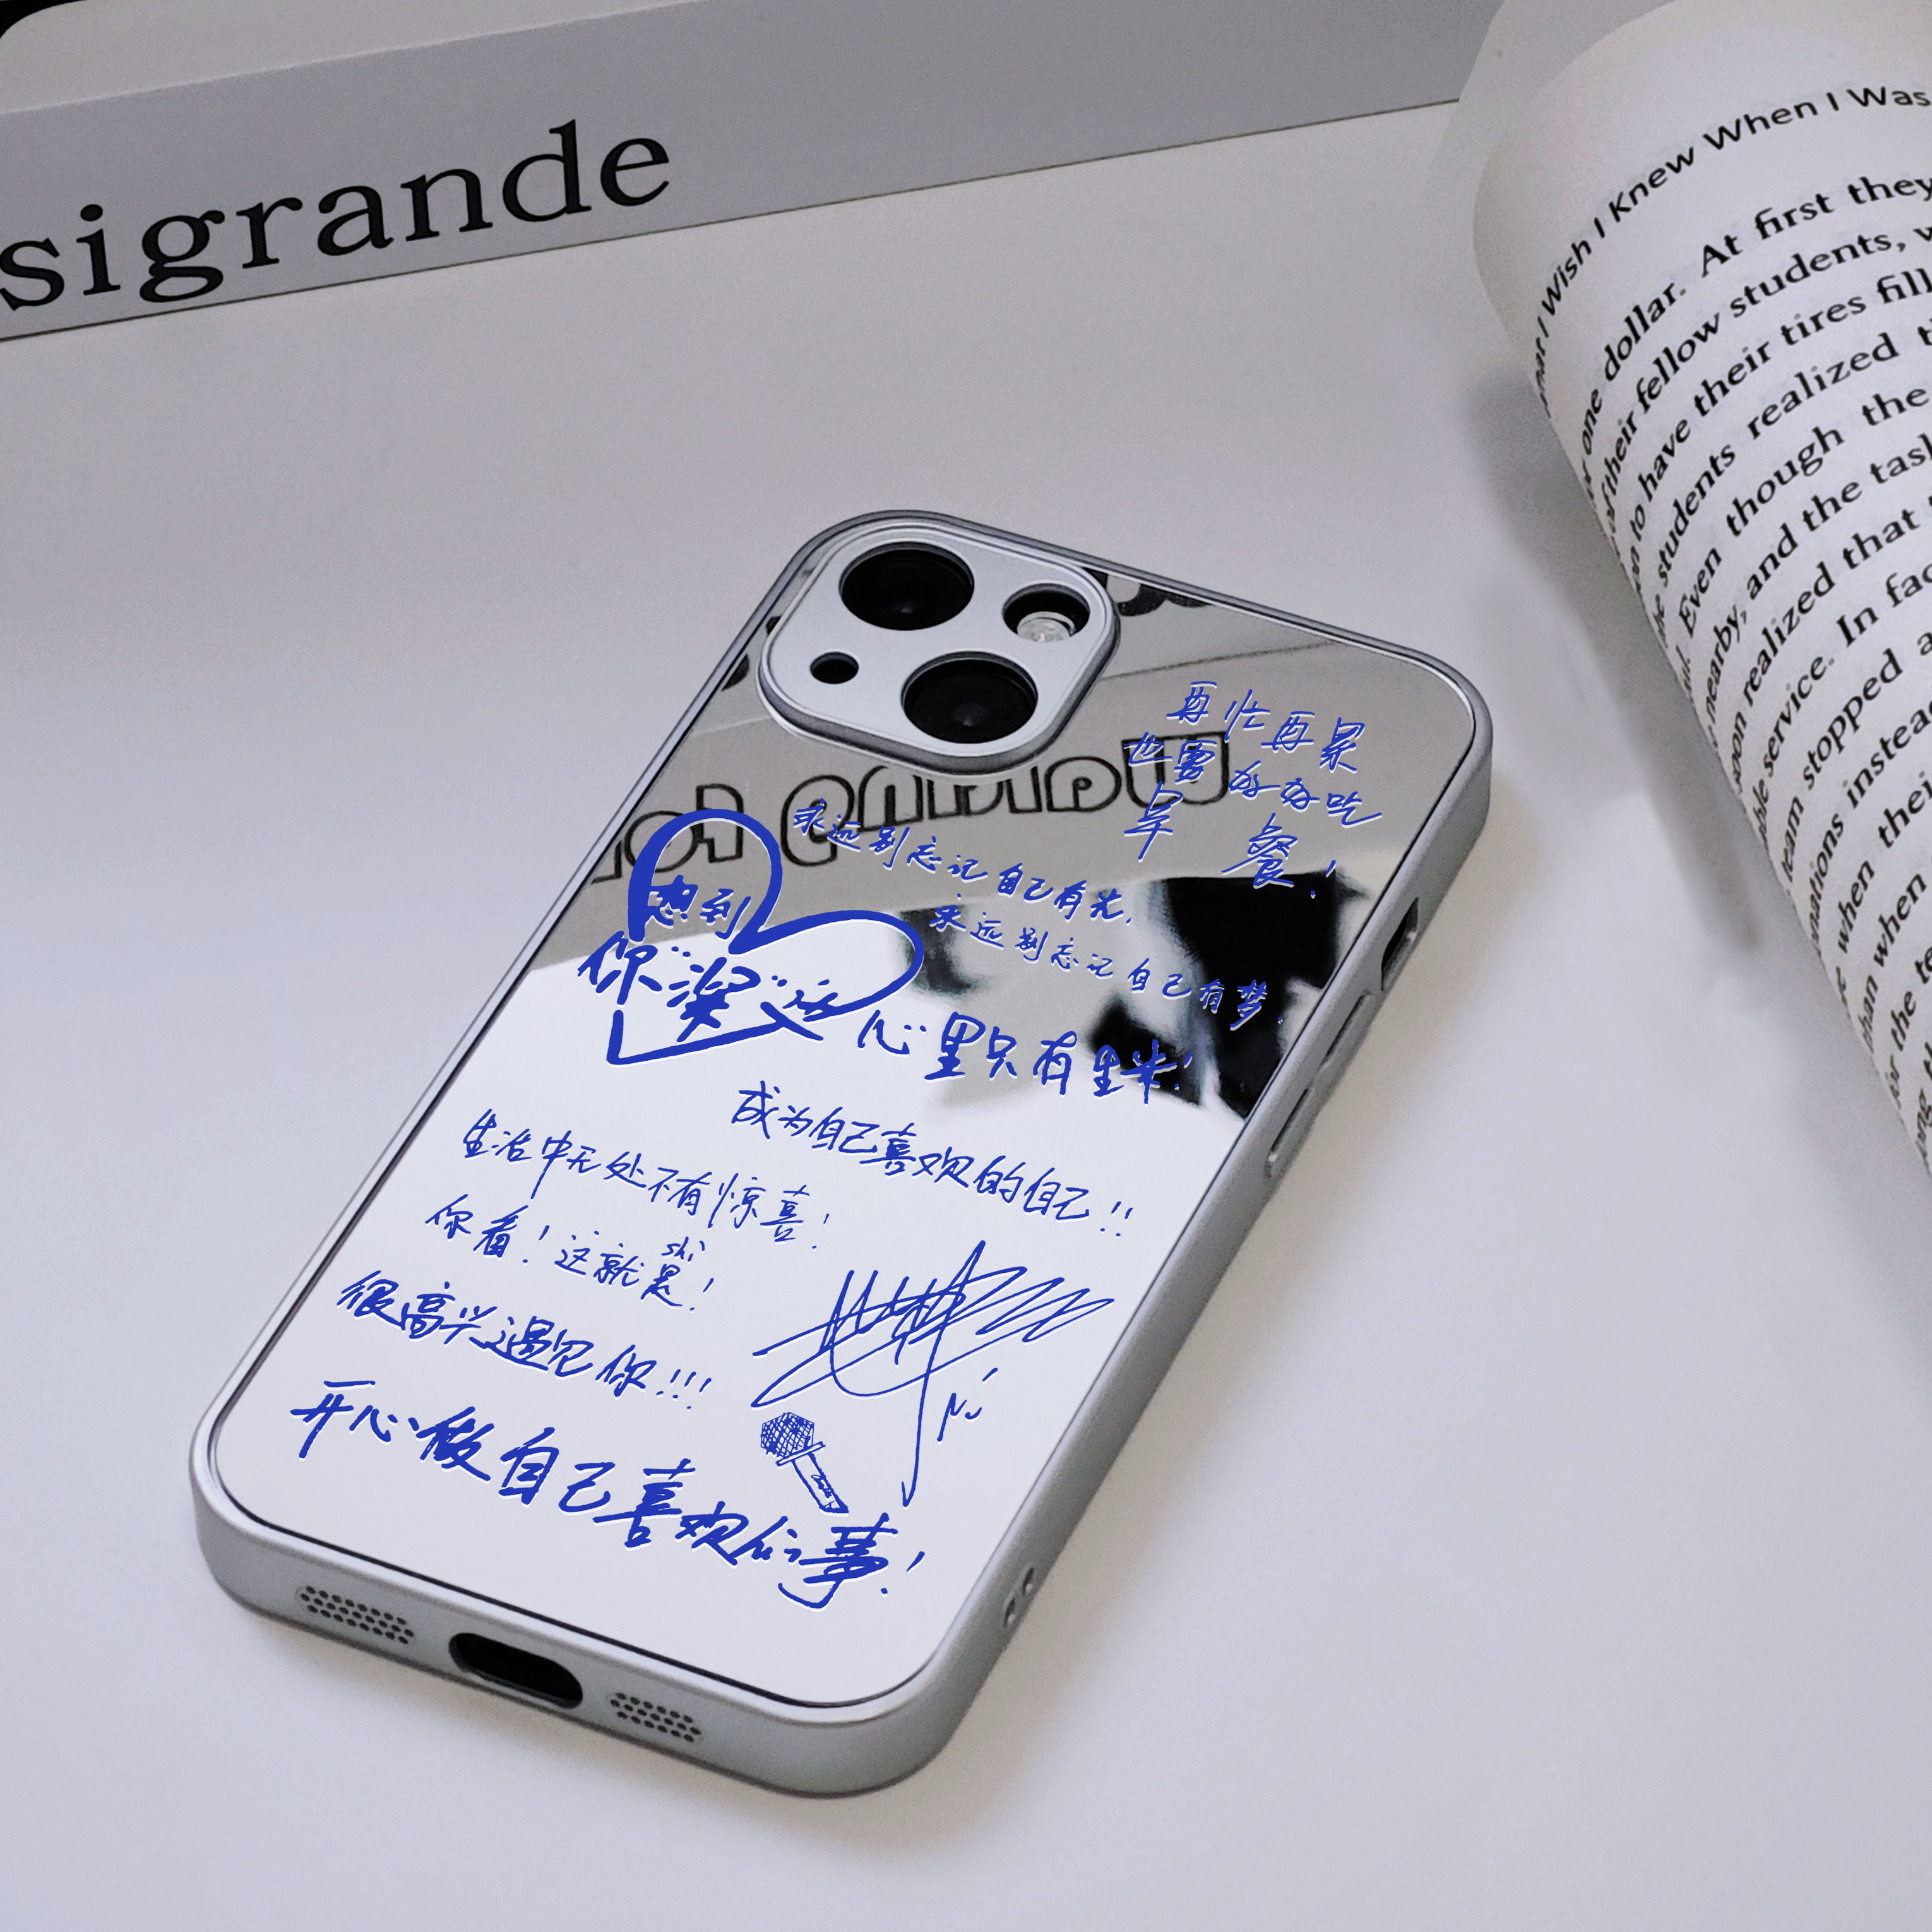 sigrande
What I Wish I Knew When I Was
one dollar. At first they
of their fellow students, w
to have their tires fill
the students realized t
Even though the
nearby, and the task
realized that
service. In fac
team stopped a
donations instead
when their
than when
for the te
再忙再累
也要好好吃
早餐!
永远别忘记自己有光,
永远别忘记自己有梦!
想到
你
心里只有生米!
成为自己喜欢的自己!!
生活中无处不有惊喜!
你看!这就是!
shi
很高兴遇见你!!!
开心做自己喜欢的事!